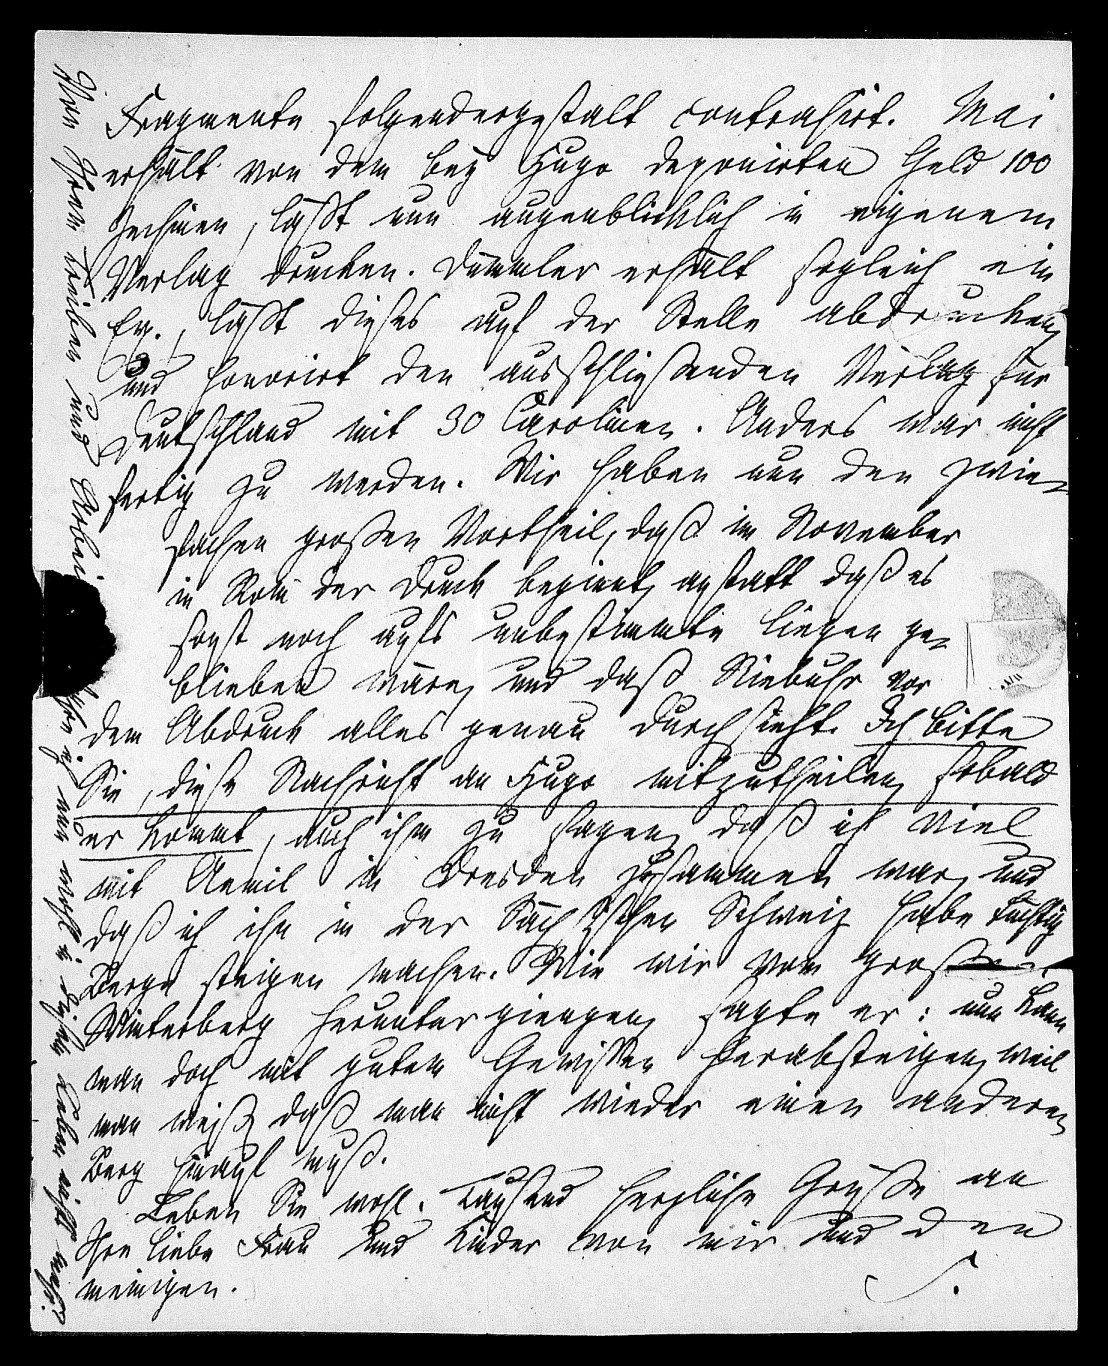 Fragmente folgendergestalt contrahirt. Mai
erhält von dem bey Hugo deponirten Geld 100
Zechinen, läßt nun augenblicklich in eigenem
Verlag drucken. Dümmler erhält sogleich ein
Ex., läßt dieses auf der Stelle abdrucken,
und honorirt den ausschließenden Verlag für
Deutschland mit 30 Carolinen. Anders war nicht
fertig zu werden. Wir haben nun den zwie-
fachen großen Vortheil, daß im November
in Rom der Druck beginnt, anstatt daß es
sonst noch aufs unbestimmte liegen ge-
blieben wäre, und daß Niebuhr vor
dem Abdruck alles genau durchsieht. Ich bitte
Sie, diese Nachricht an Hugo mitzutheilen, sobald
er kommt, auch ihm zu sagen, daß ich viel
mit Aemil in Dresden zusammen war, und
daß ich ihn in der Sächsischen Schweiz habe tüchtig
Berge steigen machen. Wie wir vom großen
Winterberg herunter giengen, sagte er: nun kann
man doch mit gutem Gewissen herabsteigen, weil
man weiß, daß man nicht wieder einen anderen
Berg hinauf muß.
Leben Sie wohl. Tausend herzliche Grüße an
Ihre liebe Frau und Kinder von mir und den
meinigen.
S.
Von Ihren und
man wohl in diesem Leben nicht mehr?